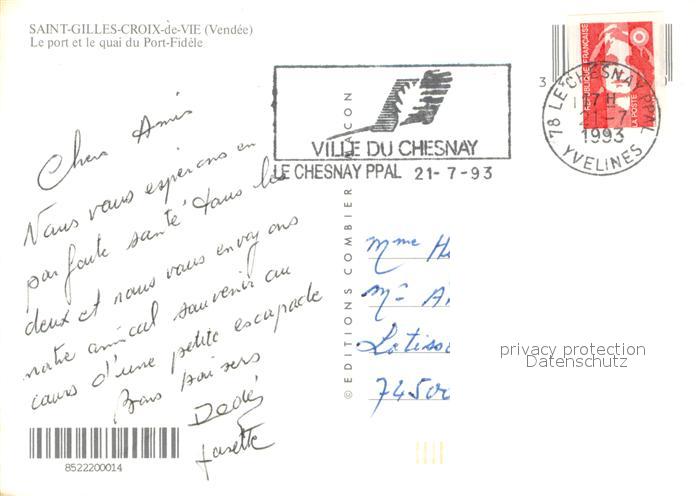 SAINT-GILLES-CROIX-de-VIE (Vendée)
Le port et le quai du Port-Fidèle
Chers Amis
Nous vous espérons en
parfaite santé tous les
deux et nous vous envoyons
notre amical souvenir au
cours d'une petite escapade
Bons baisers
Dédé
Josette
8522200014
© EDITIONS COMBIER MACON
VILLE DU CHESNAY
LE CHESNAY PPAL 21-7-93
3
0
REPUBLIQUE FRANÇAISE
LA POSTE
78 LE CHESNAY PPAL
17H
21-7
1993
YVELINES
Mme H
Mr A
Lotiss
7450
privacy protection
Datenschutz